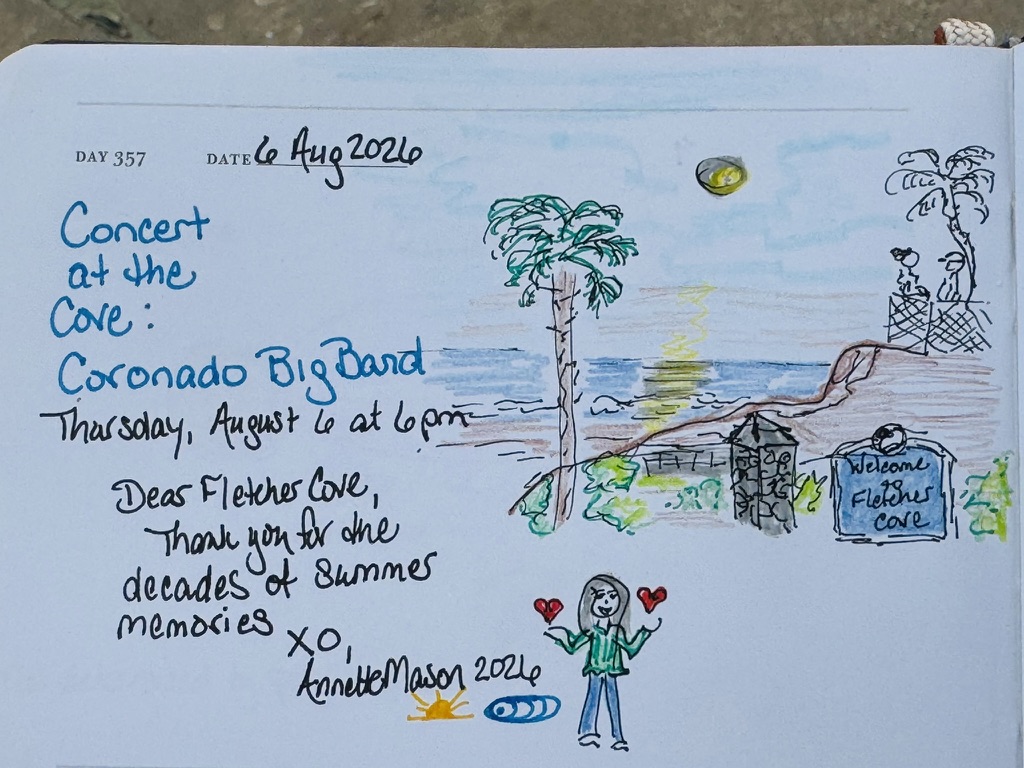 DAY 357 DATE 6 Aug 2026
Concert
at the
Cove:
Coronado Big Band
Thursday, August 6 at 6pm
Dear Fletcher Cove,
Thank you for the
decades of Summer
memories
XO,
Annette Mason 2026
Welcome
to
Fletcher
Cove